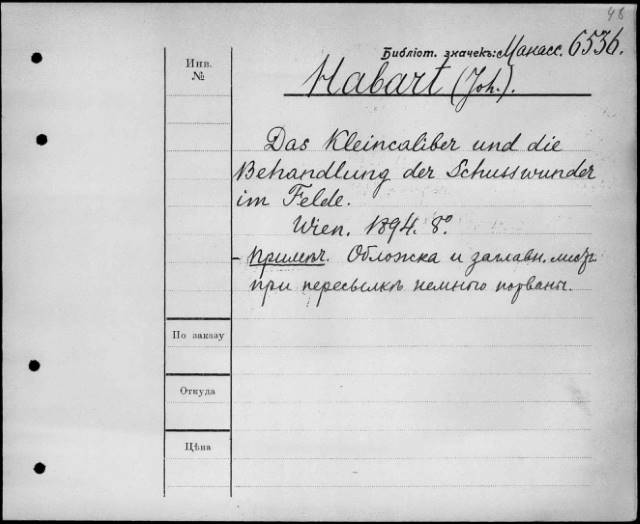 48
Библіот. значекъ: Манасс. 6536.
Инв.
№
Habart (Joh.).
Das Kleincaliber und die
Behandlung der Schusswunder
im Felde.
Wien. 1894. 8°.
- Примѣч. Обложка и заглавн. листъ
при пересылкѣ немного порваны.
По заказу
Откуда
Цѣна